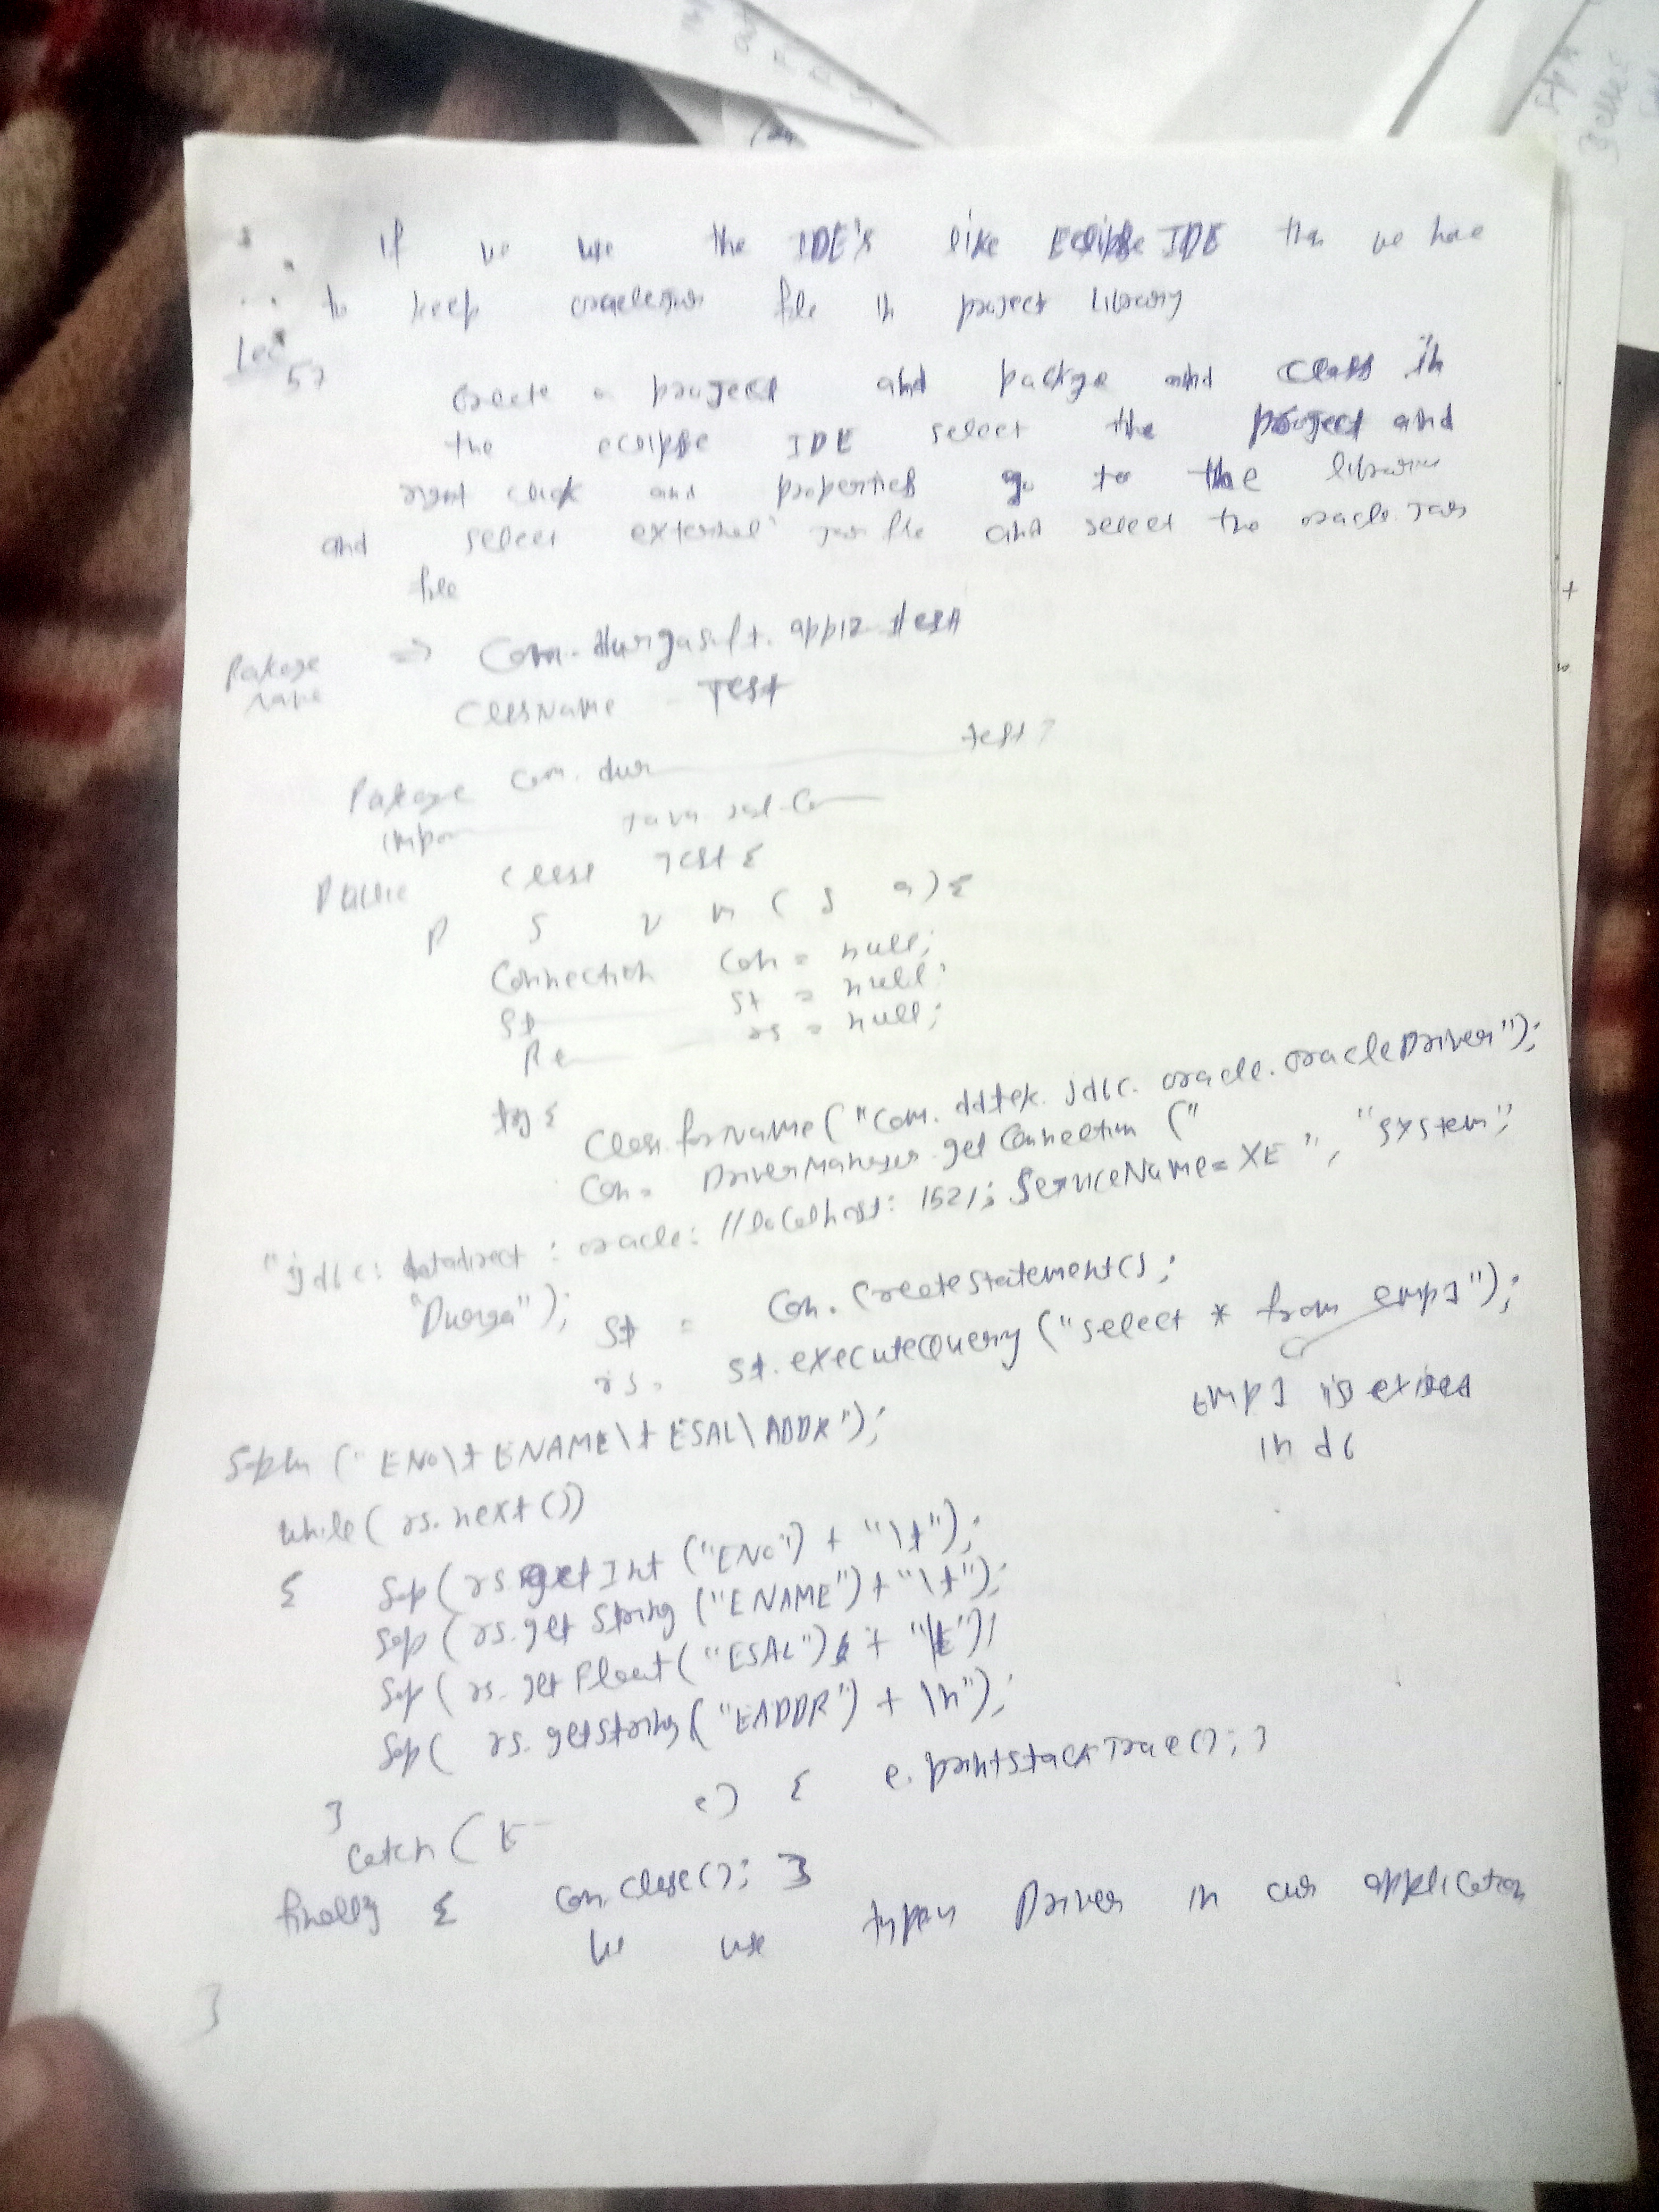 If we use the IDE's like Eclipse IDE then we have
to keep oracle.jar file in project library
Lec 57
create a project and packge and class in
the eclipse IDE select the project and
right click and properties go to the libraries
and select external jar file and select the oracle.jar
file
Pakage name => Com.durgasoft.app12.test
ClassName - Test
Pakage com.dur test;
impor java.sql.C
Public class Test {
P S V m ( S a) {
Connection con = null;
St st = null;
Re rs = null;
try {
Class.forName("com.ddtek.jdbc.oracle.OracleDriver");
Con = DriverManager.getConnection ("
"jdbc:datadirect:oracle://localhost:1521;ServiceName=XE", "system",
"Durga");
st = con.createStatement();
rs = st.executeQuery("select * from emp1");
emp1 is exised
in db
Sopln ("ENO\t ENAME\t ESAL\ADDR");
while( rs.next())
{ Sop(rs.getInt ("ENO") + "\t");
Sop (rs.getString ("ENAME") + "\t");
Sop ( rs.getFloat("ESAL") + "\t");
Sop( rs.getString("EADDR") + \n");
}
catch ( E e) { e.printStackTrace(); }
finally { con.close(); }
we use Driver in our application
}